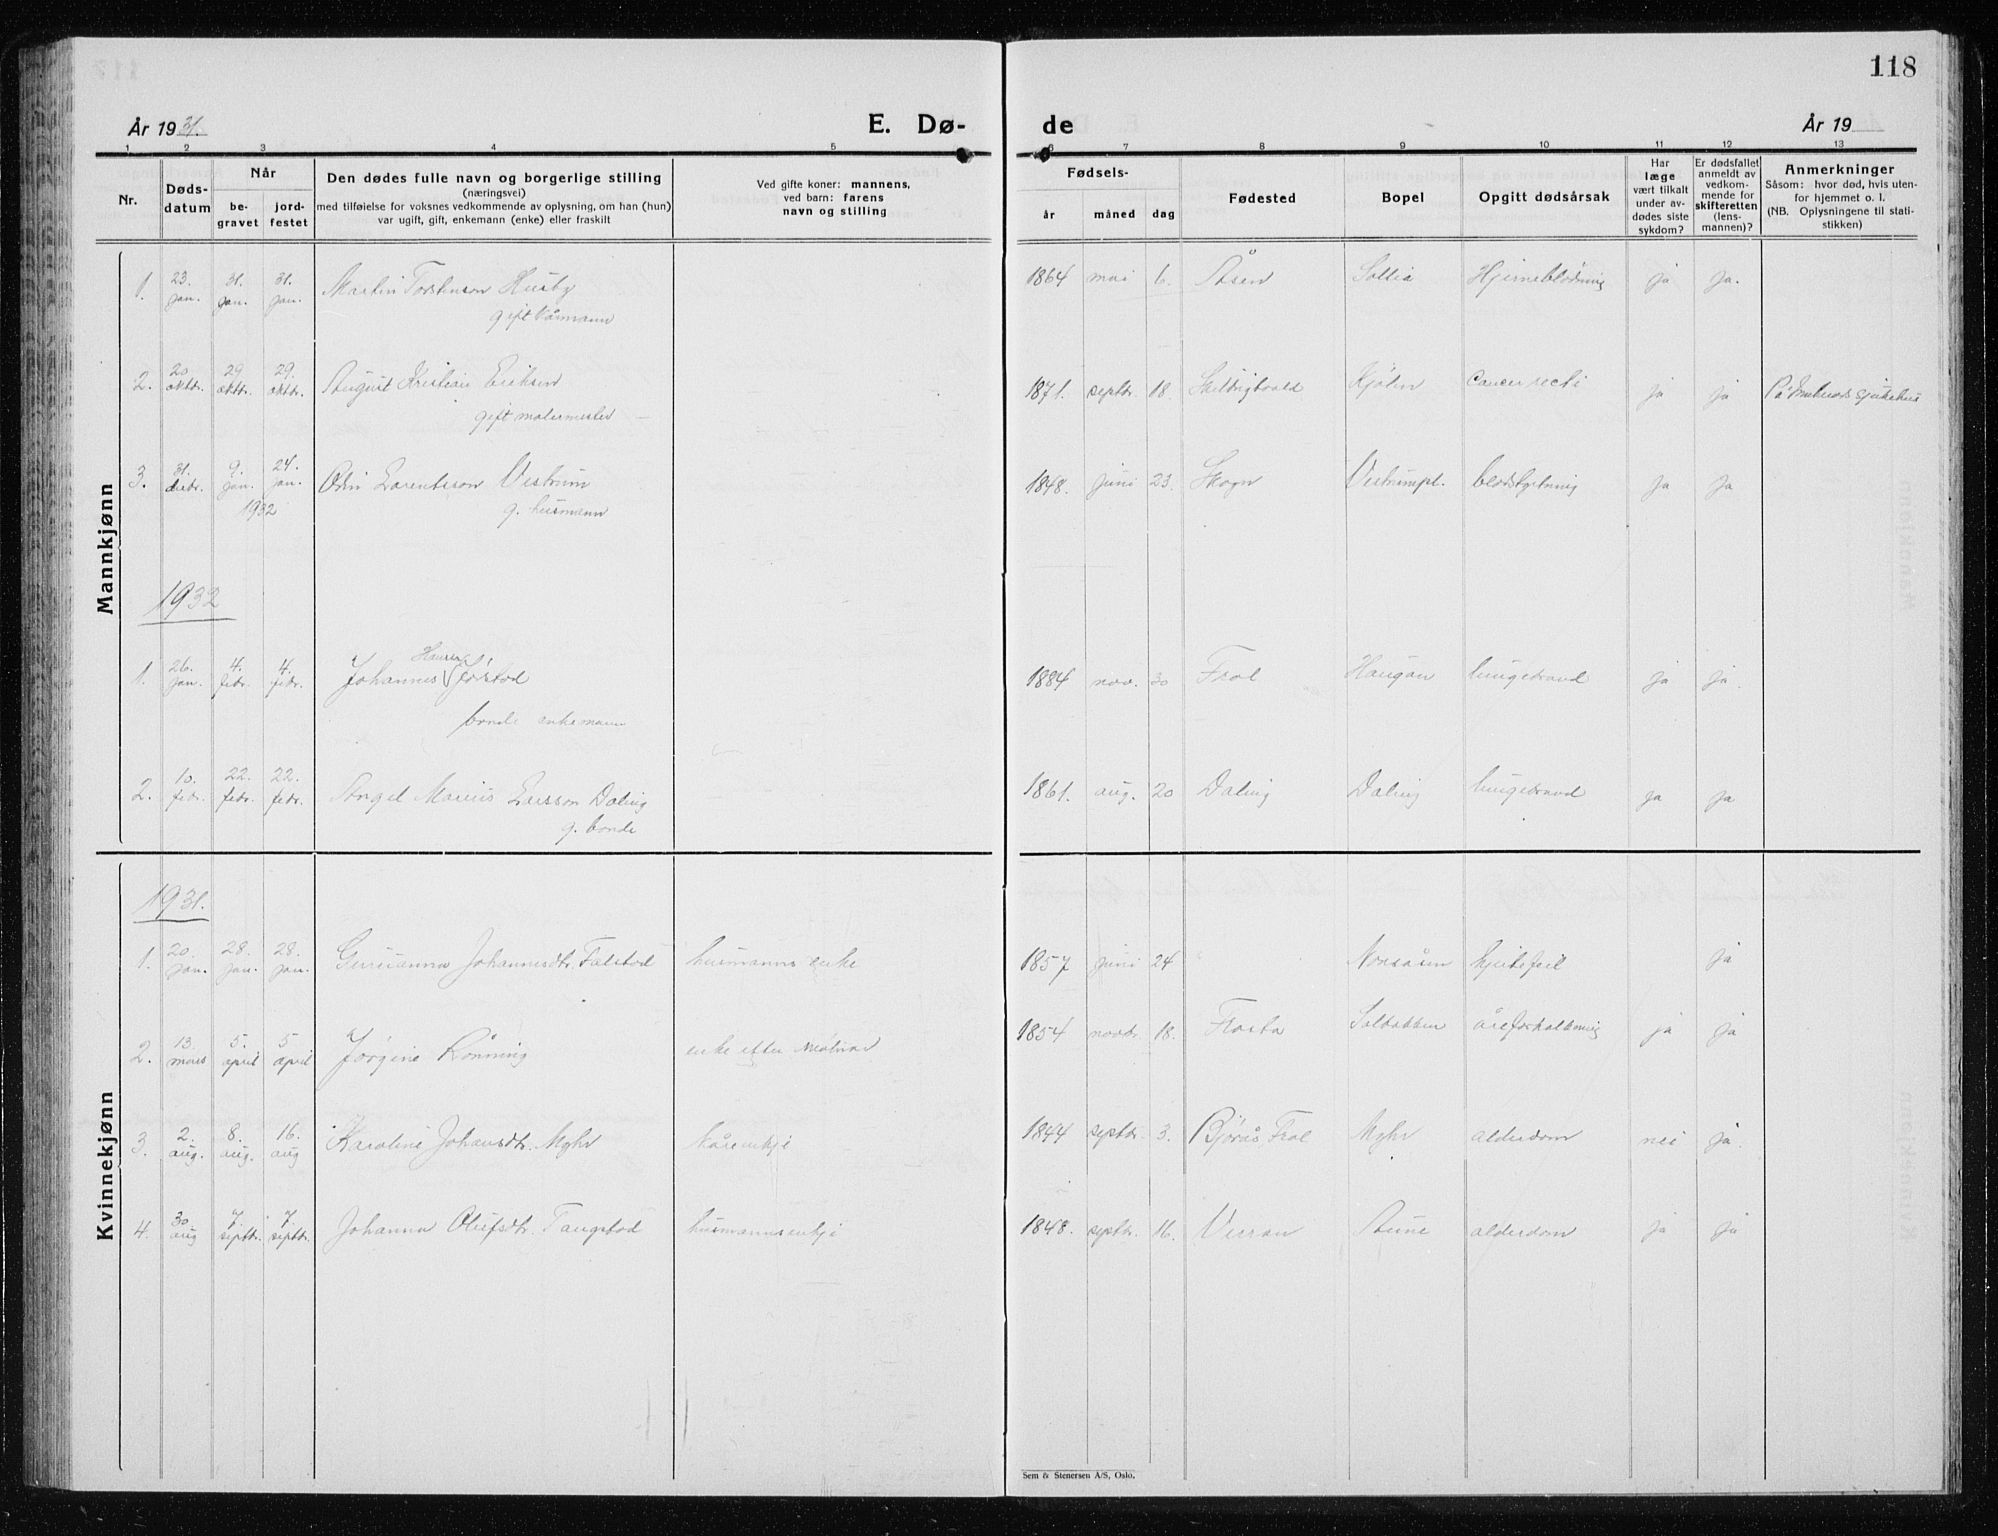 118
År 1931.
E. Dø-
de
År 19
1 2 3 4 5
6 7 8 9 10 11 12 13
Nr.
Døds-
datum
Når
be-
gravet
jord-
festet
Den dødes fulle navn og borgerlige stilling
(næringsvei)
med tilføielse for voksnes vedkommende av oplysning, om han (hun)
var ugift, gift, enkemann (enke) eller fraskilt
Ved gifte koner: mannens,
ved barn: farens
navn og stilling
Fødsels-
år måned dag
Fødested
Bopel
Opgitt dødsårsak
Har
læge
vært tilkalt
under av-
dødes siste
sykdom?
Er dødsfallet
anmeldt av
vedkom-
mende for
skifteretten
(lens-
mannen)?
Anmerkninger
Såsom: hvor død, hvis uten-
for hjemmet o. l.
(NB. Oplysningene til stati-
stikken)
Mannkjønn
1. 23. jan. 31. jan. 31. jan. Martin Torstenson Husby 1864 mai 6. Åsen Sollia Hjerneblødning ja ja.
gift kårmann
2. 20 oktbr. 29 oktbr. 29. oktbr. August Kristian Eriksen 1871. septbr. 18. Kjølen Cancer recti ja ja På Innherred sjukehus
gift malermester
3. 31. desbr. 9. jan. 24. jan. Odin Lorentsson Vestrum 1848. juni 23. Skogn Vestrumpl. blodstyrtning ja ja
1932
g. husmann
1932
1. 26. jan. 4. febr. 4. febr. Johannes Hansen Fjørstad 1884 nov. 30 Frol Haugan lungebrand ja ja.
bonde enkemann
2. 10. febr. 22. febr. 22. febr. Angel Marius Larsson Daling 1861. aug. 20 Daling Daling lungebrand ja ja
g. bonde
Kvinnekjønn
1931.
1. 20. jan. 28. jan. 28. jan. Gurianna Johannesdtr. Falstad husmanns enke 1857 juni 24 Nonsåsen hjertefeil ja
2. 13. mars 5. april 5 april Jørgine Rønning enke efter 1854 novbr. 18. Frosta Salbakken åreforkalkning ja ja
3. 2. aug. 8. aug. 16. aug Karoline Johansdtr. Myhr kårenkje 1844 septbr. 3. Bjørås Frol Myhr alderdom nei ja.
4. 30 aug 7. septbr. 7. septbr. Johanna Olufsdtr. Tangstad husmannsenkje 1848. septbr. 16. Verran Aune alderdom ja ja
Sem & Stenersen A/S, Oslo.